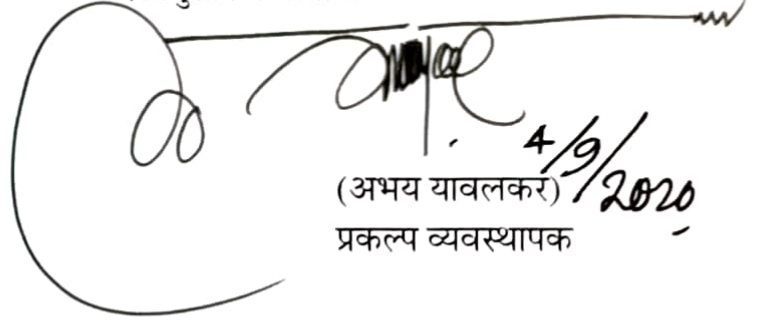 4/9/2020
(अभय यावलकर)
प्रकल्प व्यवस्थापक